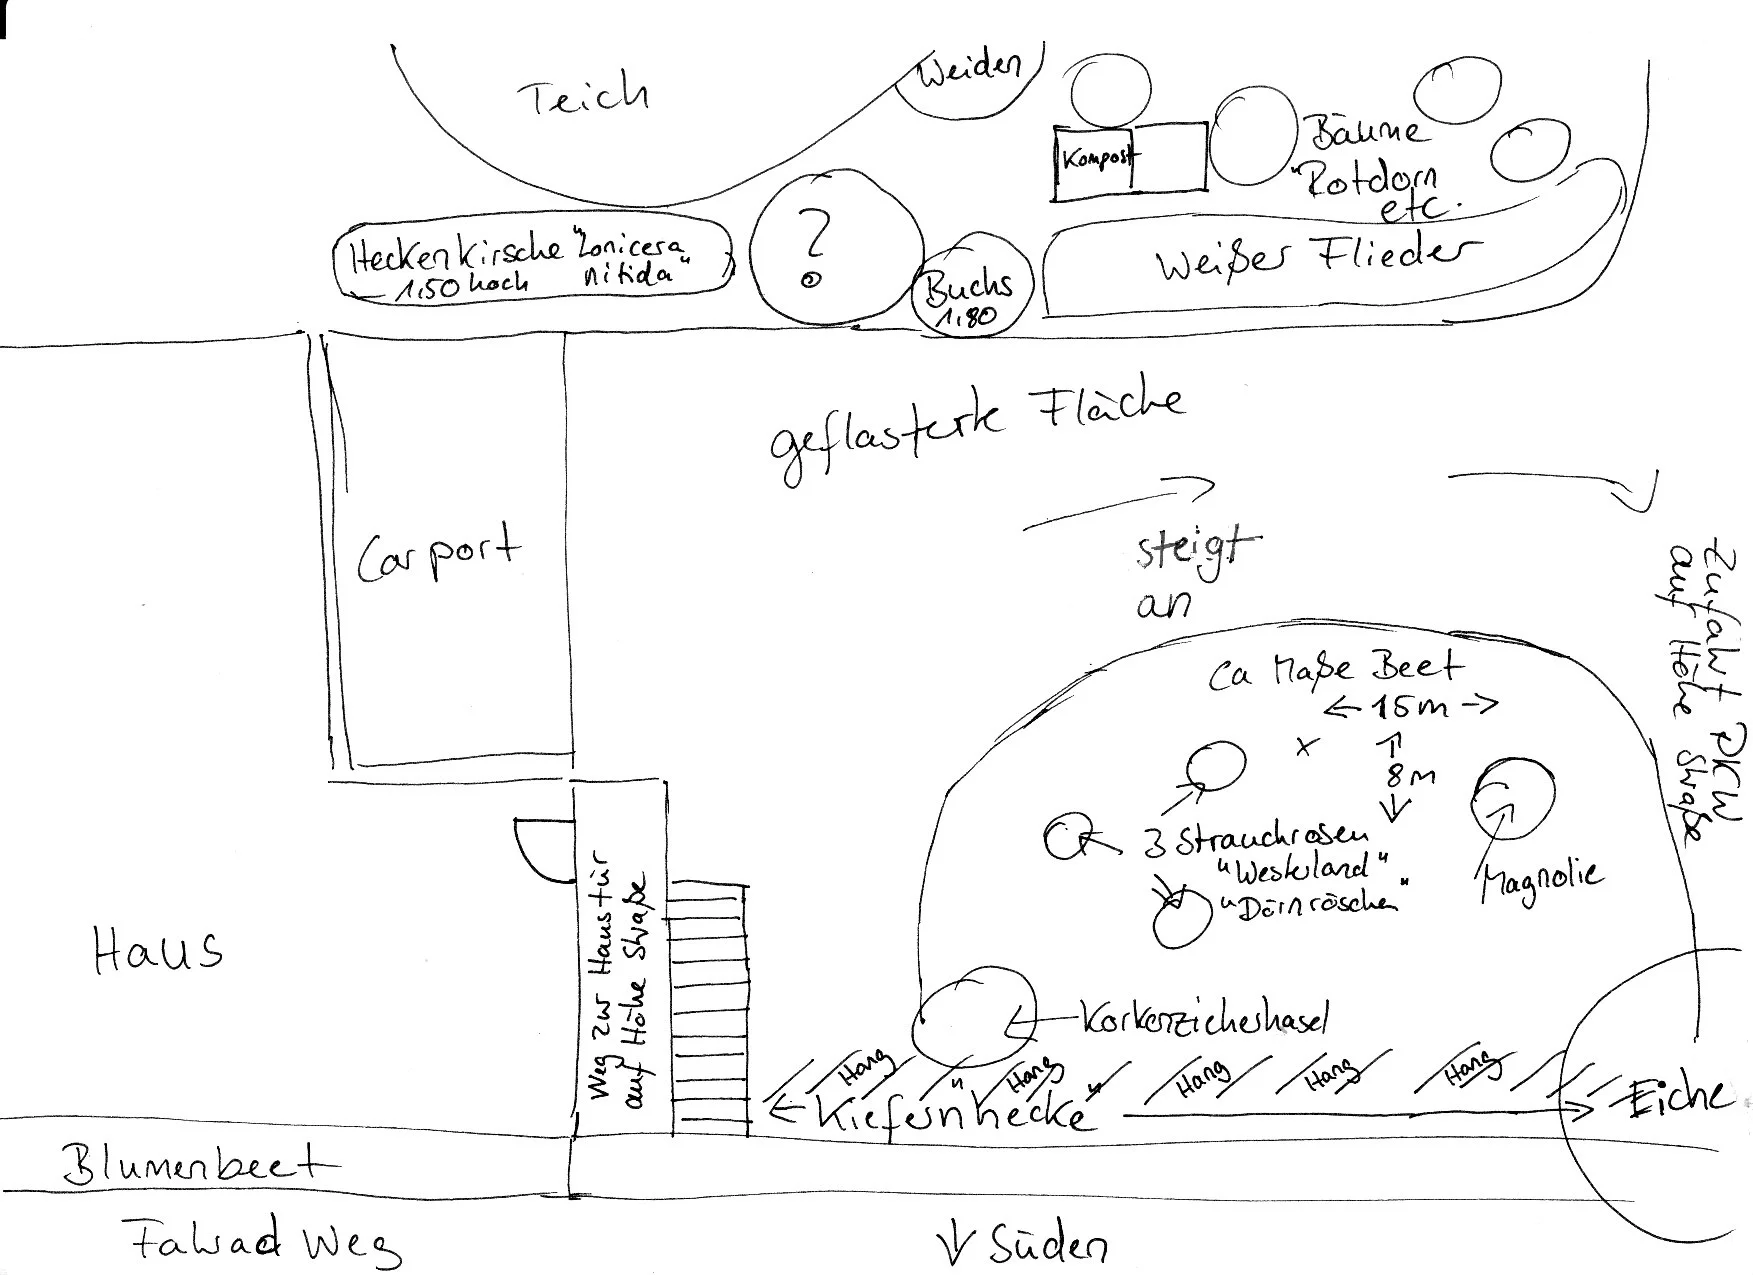 Teich
Weiden
Kompost
Bäume
"Rotdorn
etc.
Heckenkirsche "Lonicera
1,50 hoch nitida"
?
Buchs
1,80
Weißer Flieder
geflasterte Fläche
Carport
steigt
an
Zufahrt PKW
auf Höhe Straße
Ca Maße Beet
← 15m →
x
8m
3 Strauchrosen
"Westerland"
"Dörnröschen"
Magnolie
Haus
Weg zur Haustür
auf Höhe Straße
Korkenzieherhasel
Hang
Hang
Hang
Hang
Hang
"Kiefernhecke"
Eiche
Blumenbeet
Fahrad Weg
↓ Süden